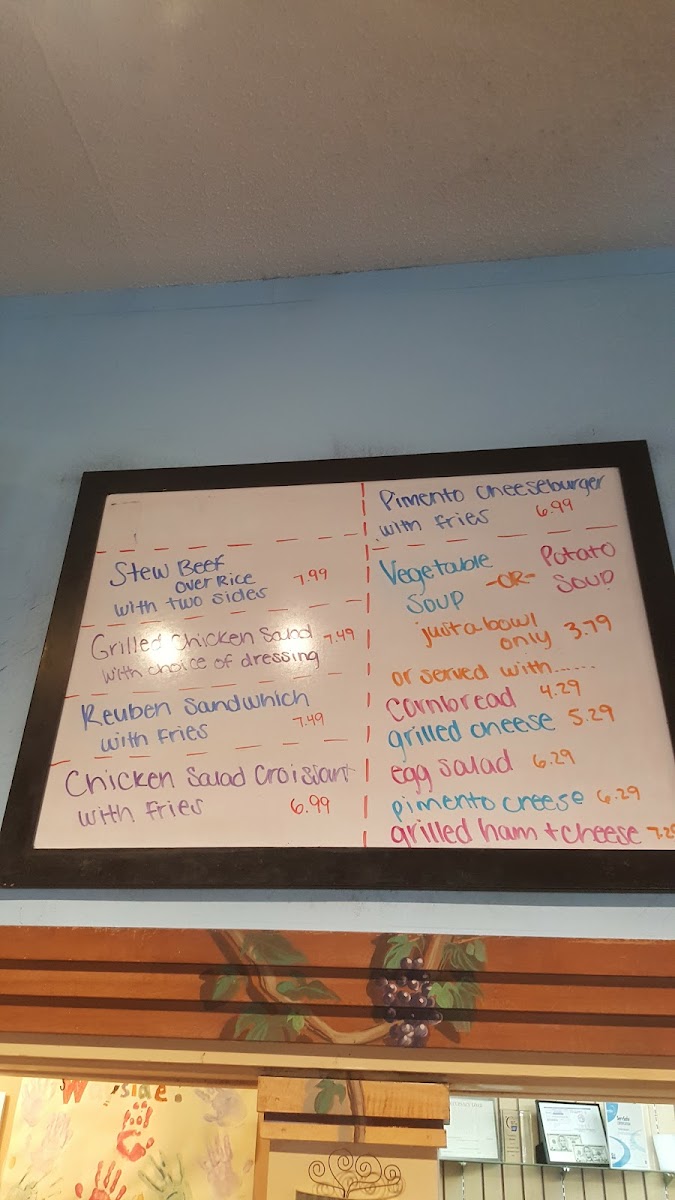 Stew Beef
over Rice
with two sides 7.99
Grilled Chicken Salad 7.49
with choice of dressing
Reuben Sandwhich
with fries 7.49
Chicken Salad Croissant
with fries 6.99
Pimento cheeseburger
with fries 6.99
Vegetable Soup
-OR-
Potato Soup
just a bowl
only 3.79
or served with......
cornbread 4.29
grilled cheese 5.29
egg salad 6.29
pimento cheese 6.29
grilled ham + cheese 7.29